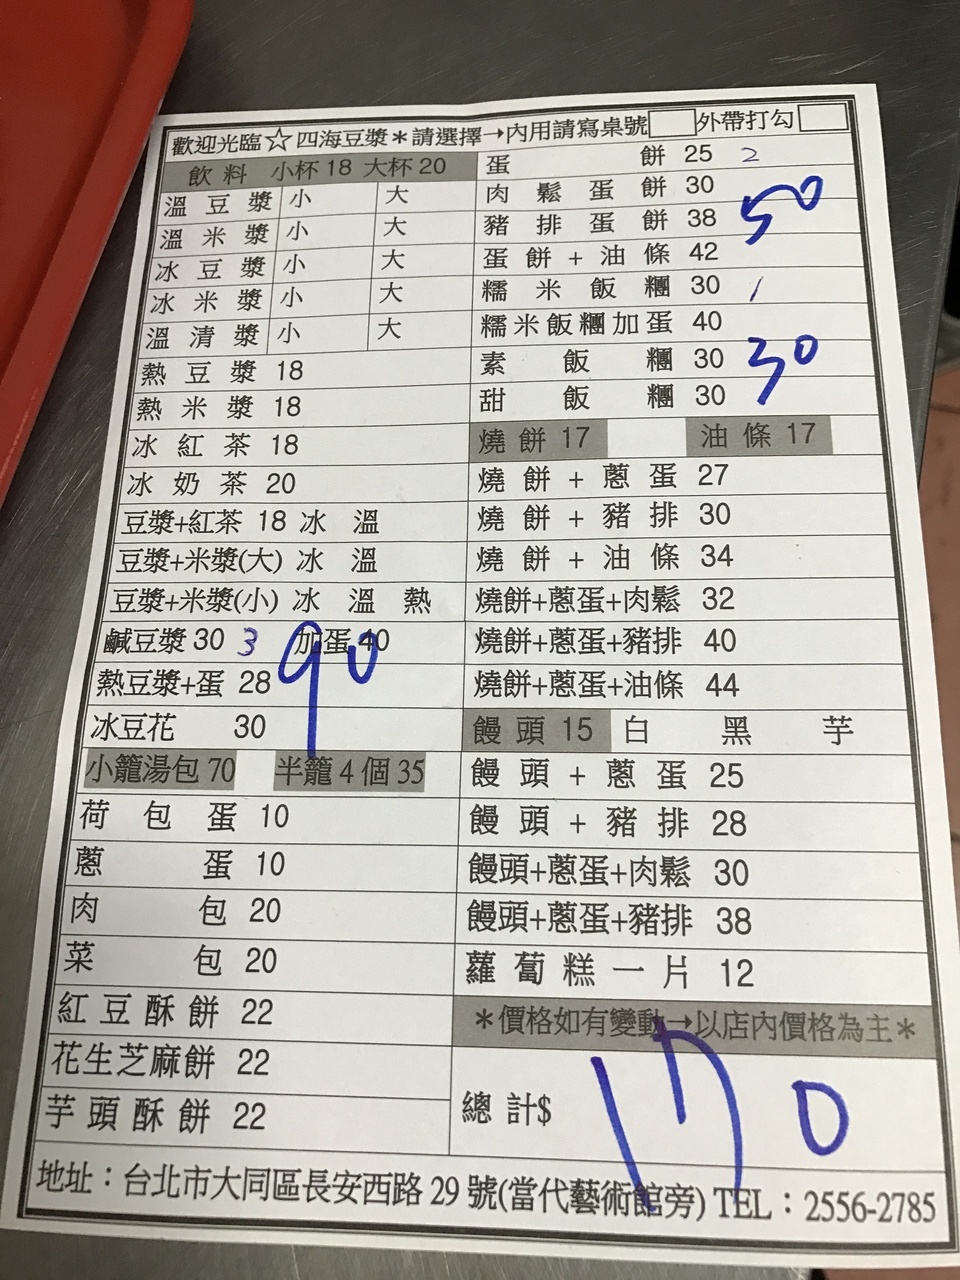 歡迎光臨☆四海豆漿＊請選擇→內用請寫桌號 外帶打勾
飲料 小杯18 大杯20
溫豆漿 小 大
溫米漿 小 大
冰豆漿 小 大
冰米漿 小 大
溫清漿 小 大
熱豆漿 18
熱米漿 18
冰紅茶 18
冰奶茶 20
豆漿+紅茶 18 冰 溫
豆漿+米漿(大) 冰 溫
豆漿+米漿(小) 冰 溫 熱
鹹豆漿 30 3 加蛋 40
90
熱豆漿+蛋 28
冰豆花 30
小籠湯包 70 半籠 4 個 35
荷包蛋 10
蔥蛋 10
肉包 20
菜包 20
紅豆酥餅 22
花生芝麻餅 22
芋頭酥餅 22
蛋餅 25 2
肉鬆蛋餅 30
50
豬排蛋餅 38
蛋餅+油條 42
糯米飯糰 30 1
糯米飯糰加蛋 40
素飯糰 30
30
甜飯糰 30
燒餅 17 油條 17
燒餅+蔥蛋 27
燒餅+豬排 30
燒餅+油條 34
燒餅+蔥蛋+肉鬆 32
燒餅+蔥蛋+豬排 40
燒餅+蔥蛋+油條 44
饅頭 15 白 黑 芋
饅頭+蔥蛋 25
饅頭+豬排 28
饅頭+蔥蛋+肉鬆 30
饅頭+蔥蛋+豬排 38
蘿蔔糕一片 12
＊價格如有變動→以店內價格為主＊
總計$ 170
地址：台北市大同區長安西路 29 號(當代藝術館旁) TEL：2556-2785